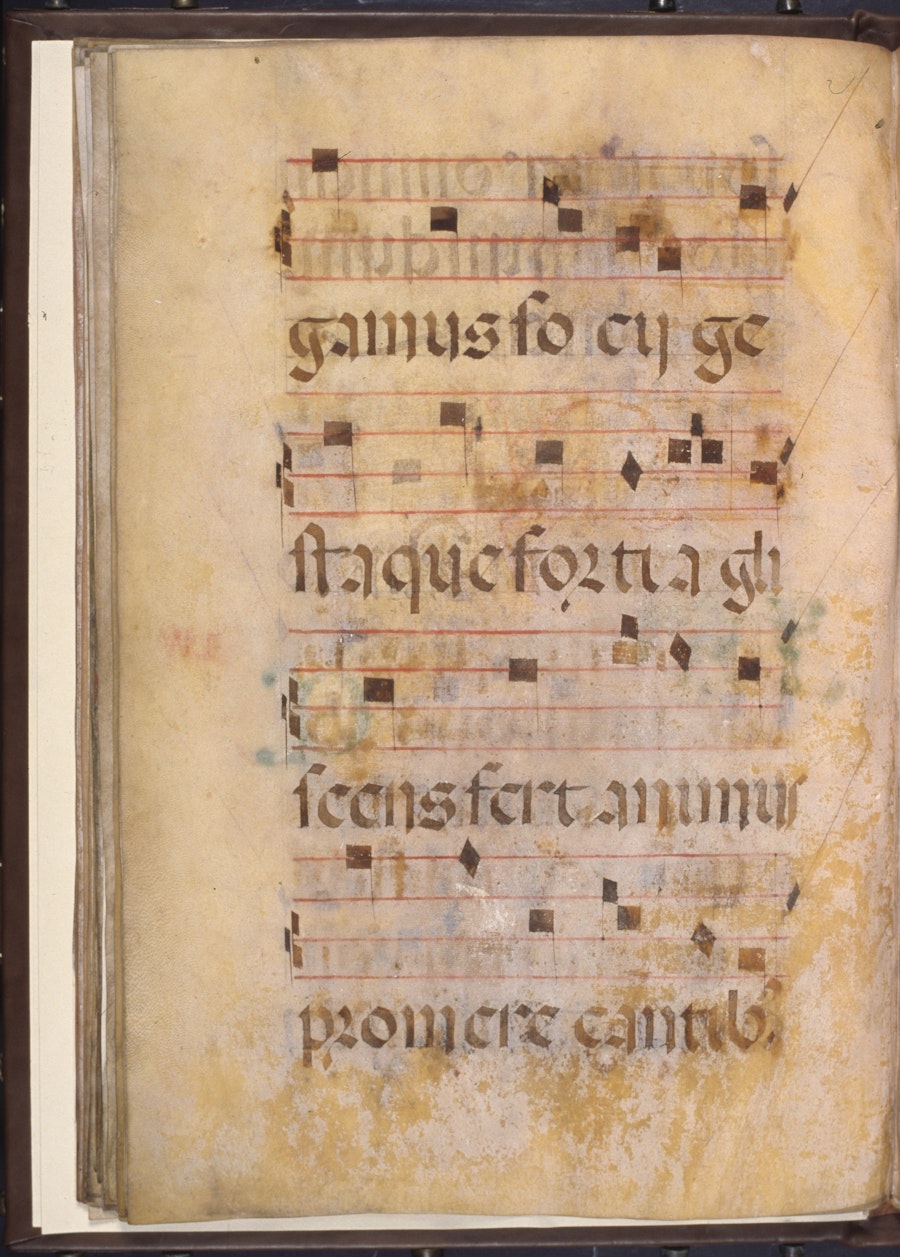 gamus so cij ge
sta que forti a gli
scens fert animus
promere cantib9